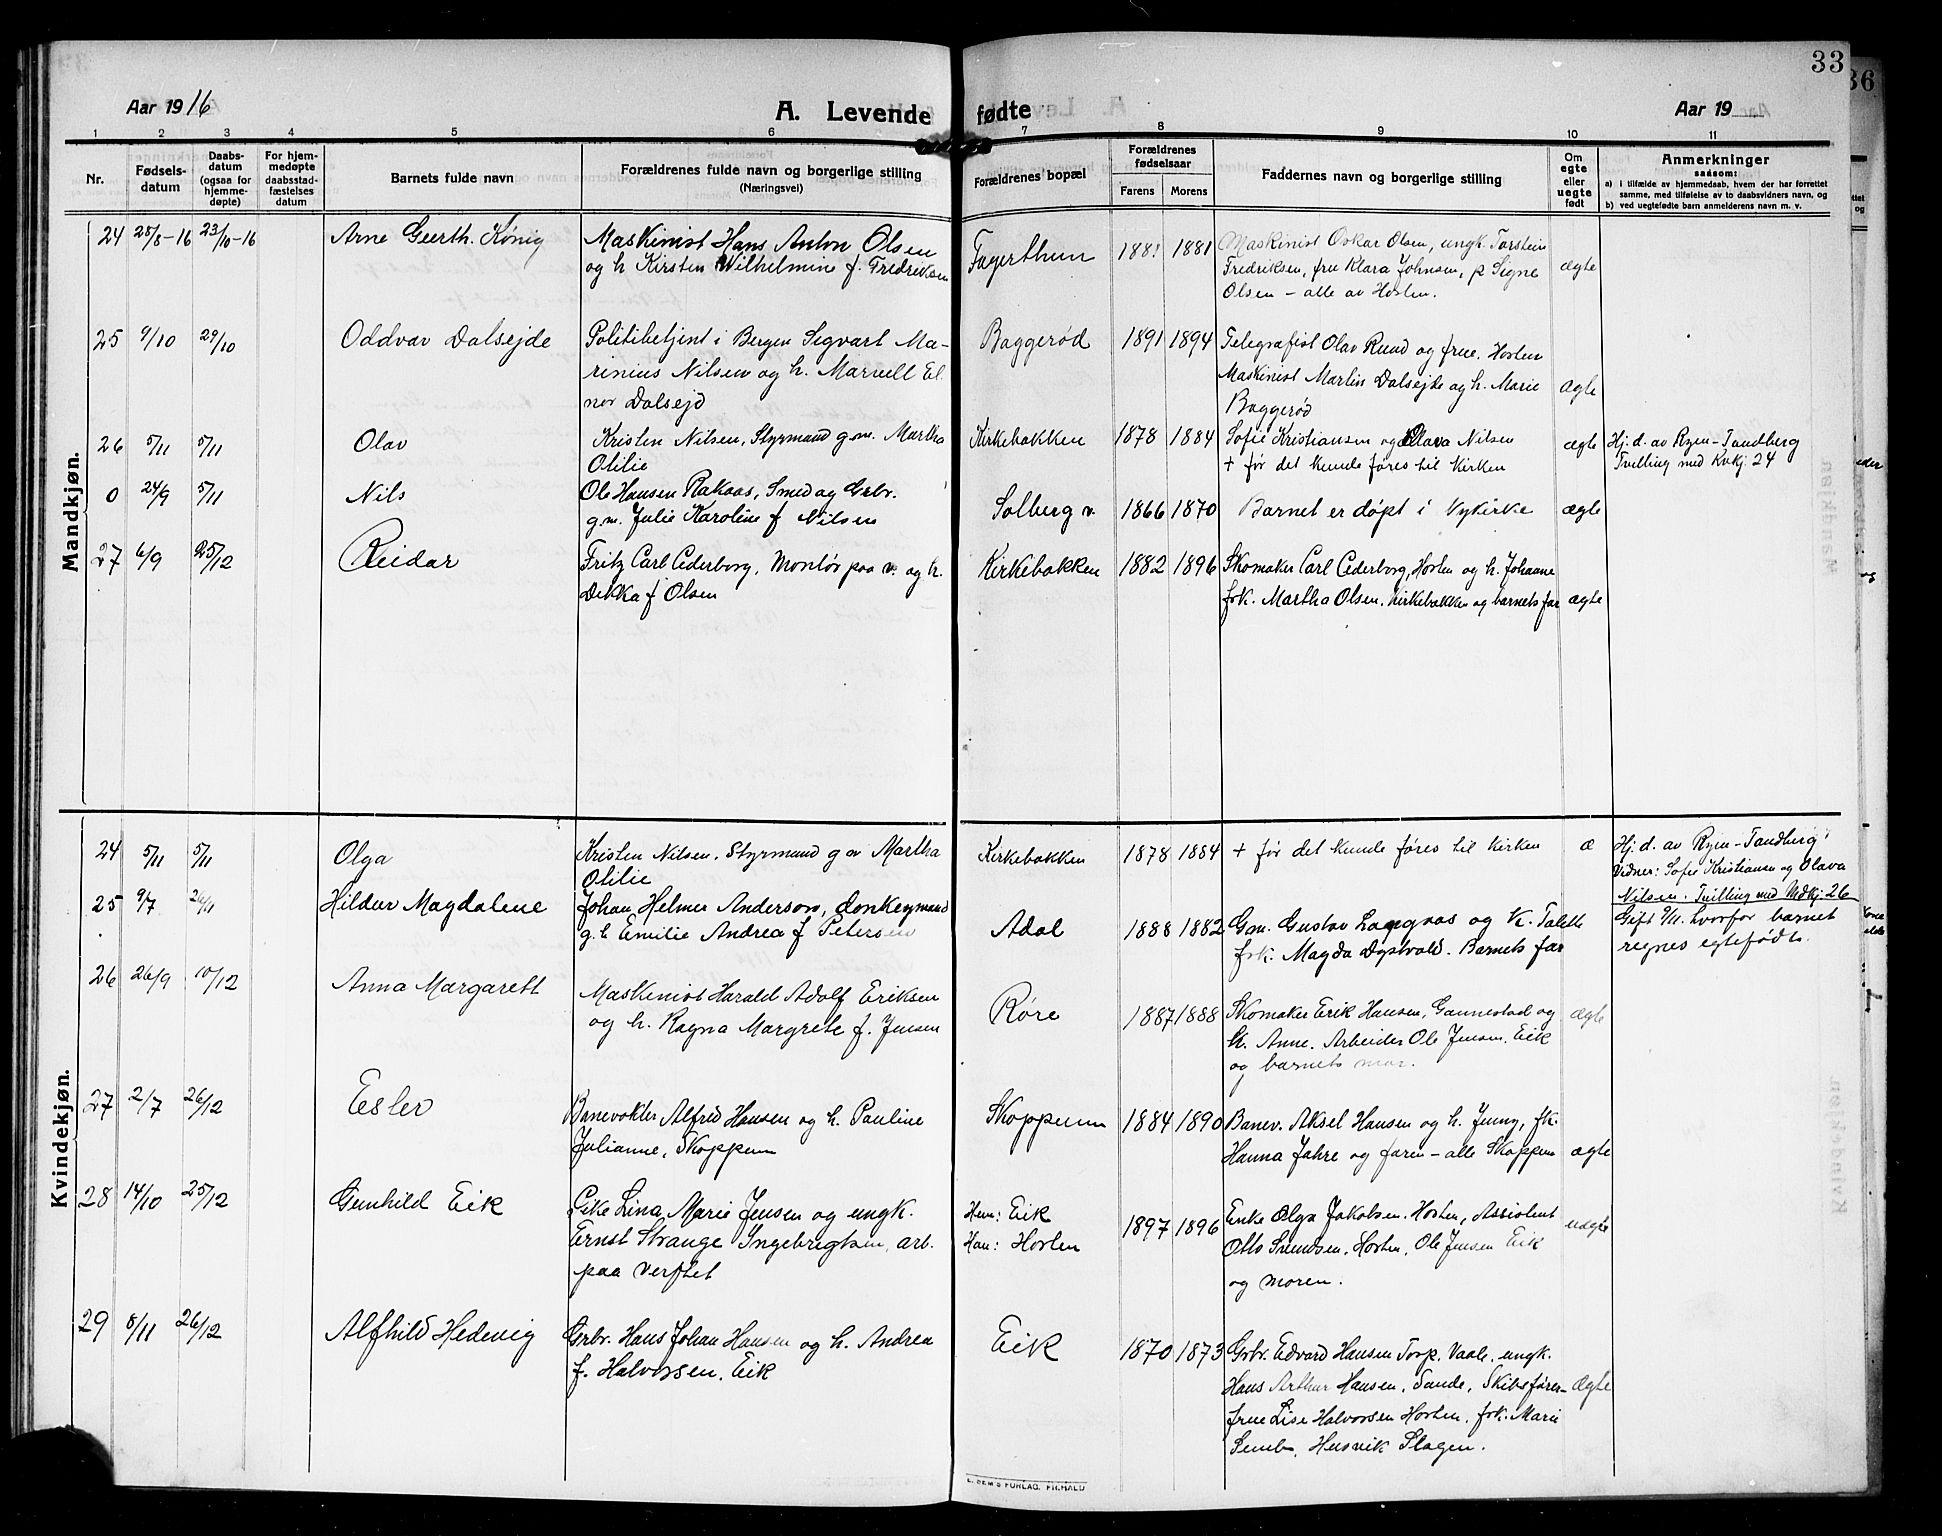 33
36
Aar 1916
A. Levende fødte
Aar 19
1 2 3 4 5 6 7 8 9 10 11
Nr.
Fødsels-
datum
Daabs-
datum
(ogsaa for
hjemme-
døpte)
For hjem-
medøpte
daabsstad-
fæstelses
datum
Barnets fulde navn
Forældrenes fulde navn og borgerlige stilling
(Næringsvei)
Forældrenes bopæl
Forældrenes
fødselsaar
Farens Morens
Faddernes navn og borgerlige stilling
Om
egte
eller
uegte
født
Anmerkninger
saasom:
a) i tilfælde av hjemmedaab, hvem der har forrettet
samme, med tilføielse av to daabsvidners navn, og
b) ved uegtefødte barn anmelderens navn m. v.
Mandkjøn.
24 25/8-16 23/10-16 Arne Geerth. König
Maskinist Hans Anton Olsen
og h. Kirsten Wilhelmine f. Fredriksen
Fagerthun 1881 1881
Maskinist Oskar Olsen, ungk. Torstein
Fredriksen, frue Klara Johnsen, p Signe
Olsen – alle av Horten.
ægte
25 9/10 29/10 Oddvar Dalsejde
Politibetjent i Bergen Sigvart Ma-
rinius Nilsen og h. Marvell El
nor Dalsejd
Baggerød 1891 1894
Telegrafist Olav Ruud og frue. Horten
Maskinist Martin Dalsejde og h. Marie
Baggerød
Ægte
26 5/11 5/11 Olav
Kristen Nilsen, Styrmand g.m. Martha
Otilie
Kirkebakken 1878 1884
Sofie Kristiansen og Olava Nilsen
+ før det kunde føres til Kirken
ægte
Hj. d. av Ryen-Tandberg
Tvilling med Kvkj. 24
0 24/9 5/11 Nils
Ole Hansen Rakaas, Smed og Grbr.
g.m. Julie Karoline f Nilsen
Solberg v. 1866 1870
Barnet er døpt i Nykirke
ægte
27 6/9 25/12 Reidar
Fritz Carl Cederborg, Montør paa v. og h.
Dekka f Olsen
Kirkebakken 1882 1896
Skomaker Carl Cederborg, Horten og h. Johanne
frk. Martha Olsen. Kirkebakken og barnets far
ægte
Kvindekjøn.
24 5/11 5/11 Olga
Kristen Nilsen. Styrmand g av Martha
Otilie
Kirkebakken 1878 1884
+ før det kunde føres til Kirken
æ
Hj. d. av Ryen-Tandberg
Vidner: Sofie Kristiansen og Olava
Nilsen. Tvilling med Mdkj. 26
25 9/7 26/11 Hildur Magdalene
Johan Helmer Anderson, donkeymand
g. h Emilie Andrea f Petersen
Adal 1888 1882
Gm. Gustav Langaas og K. Talette
frk. Magda Dystvold. Barnets far
Gift 9/11. hvorfor barnet
regnes egtefødt.
26 26/9 10/12 Anna Margarett
Maskinist Harald Adolf Eriksen
og h. Ragna Margrete f. Jensen
Røre 1887 1888
Skomaker Erik Hansen, Gannestad og
h. Anne. Arbeider Ole Jensen. Eik
og barnets mor.
ægte
27 2/7 26/12 Esler
Banevokter Alfred Hansen og h. Pauline
Julianne, Skoppum
Skoppum 1884 1890
Banev. Aksel Hansen og h. Jenny, fk.
Hanna Jahre og faren – alle Skoppum
ægte
28 14/10 25/12 Gunhild Eik
Pike Lina, Marie Jensen og ungk.
Ernst Strange Ingebrigtsen, arb.
paa verftet
Hun: Eik
Han: Horten
1897 1896
Enke Olga Jakobsen. Horten, Assistent
Otto Svendsen, Horten, Ole Jensen Eik
og moren.
uægte
29 5/11 26/12 Alfhild Hedevig
Grbr. Hans Johan Hansen og h. Andrea
f. Halvorsen. Eik
Eik 1870 1873
Grbr. Edvard Hansen Torp. Vaale. ungk.
Hans Arthur Hansen. Sande, Skibsfører-
frue Lise Halvorsen Horten. frk. Marie
Semb, Husvik Slagen.
Ægte
E. SEM'S FORLAG, FR.HALD